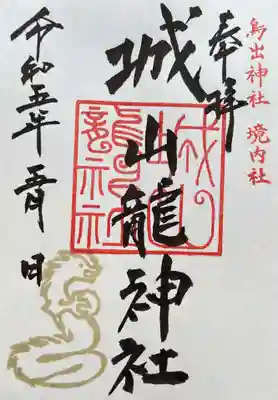 鳥出神社 境内社
奉拝
城山龍神社
令和五年 五月 日